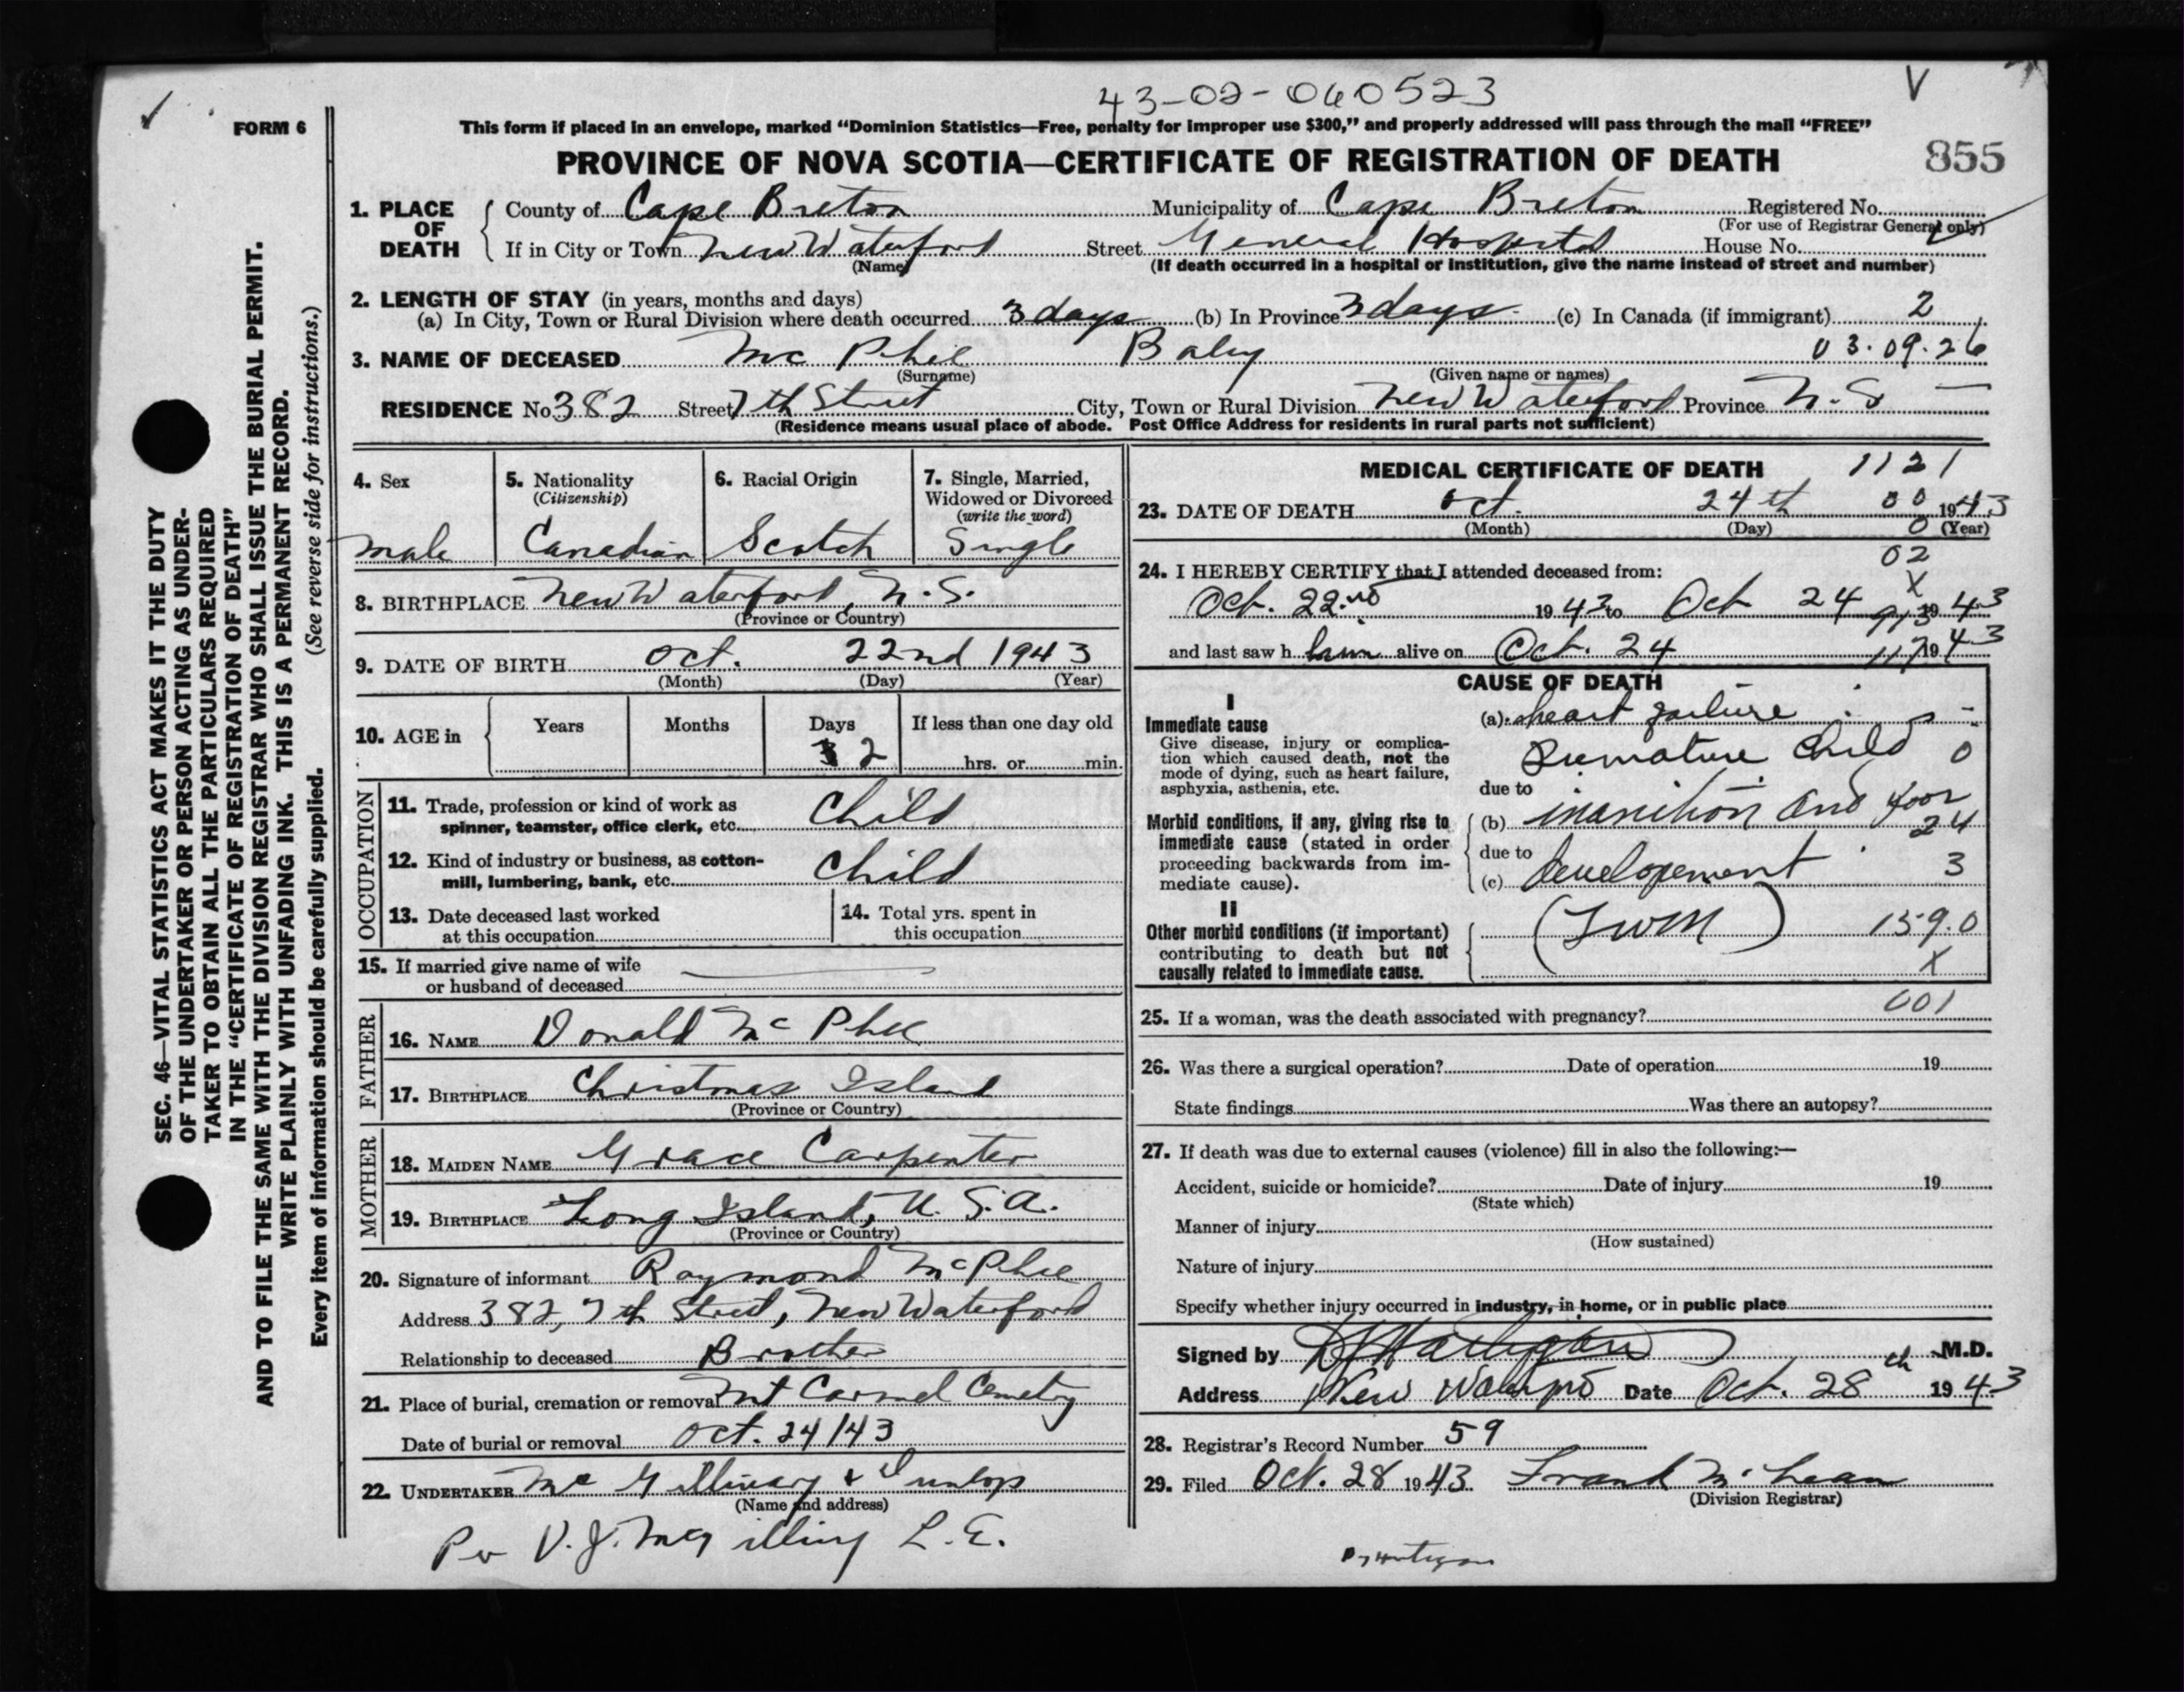 43-02-060523
V
FORM 6
This form if placed in an envelope, marked "Dominion Statistics—Free, penalty for improper use $300," and properly addressed will pass through the mail "FREE"
PROVINCE OF NOVA SCOTIA—CERTIFICATE OF REGISTRATION OF DEATH 855
SEC. 46—VITAL STATISTICS ACT MAKES IT THE DUTY
OF THE UNDERTAKER OR PERSON ACTING AS UNDER-
TAKER TO OBTAIN ALL THE PARTICULARS REQUIRED
IN THE "CERTIFICATE OF REGISTRATION OF DEATH"
AND TO FILE THE SAME WITH THE DIVISION REGISTRAR WHO SHALL ISSUE THE BURIAL PERMIT.
WRITE PLAINLY WITH UNFADING INK. THIS IS A PERMANENT RECORD.
Every item of information should be carefully supplied. (See reverse side for instructions.)
1. PLACE OF DEATH County of Cape Breton Municipality of Cape Breton Registered No.
(For use of Registrar General only)
If in City or Town New Waterford Street General Hospital House No.
(Name) (If death occurred in a hospital or institution, give the name instead of street and number)
2. LENGTH OF STAY (in years, months and days)
(a) In City, Town or Rural Division where death occurred 3 days (b) In Province 3 days (c) In Canada (if immigrant) 2
3. NAME OF DECEASED Mc Phee Baby 03.09.26
(Surname) (Given name or names)
RESIDENCE No 382 Street 7th Street City, Town or Rural Division New Waterford Province N.S
(Residence means usual place of abode. Post Office Address for residents in rural parts not sufficient)
4. Sex 5. Nationality (Citizenship) 6. Racial Origin 7. Single, Married, Widowed or Divorced (write the word)
male Canadian Scotch Single
8. BIRTHPLACE New Waterford, N.S.
(Province or Country)
9. DATE OF BIRTH Oct. 22nd 1943
(Month) (Day) (Year)
10. AGE in Years Months Days If less than one day old
2 hrs. or min.
OCCUPATION
11. Trade, profession or kind of work as spinner, teamster, office clerk, etc. Child
12. Kind of industry or business, as cotton-mill, lumbering, bank, etc. Child
13. Date deceased last worked at this occupation 14. Total yrs. spent in this occupation
15. If married give name of wife or husband of deceased
FATHER
16. NAME Donald Mc Phee
17. BIRTHPLACE Christmas Island
(Province or Country)
MOTHER
18. MAIDEN NAME Grace Carpenter
19. BIRTHPLACE Long Island, U.S.A.
(Province or Country)
20. Signature of informant Raymond McPhee
Address 382, 7th Street, New Waterford
Relationship to deceased Brother
21. Place of burial, cremation or removal Mt Carmel Cemetry
Date of burial or removal Oct. 24/43
22. UNDERTAKER Mc Gillivary & Dunlop
(Name and address)
Per V.J. L.E.
MEDICAL CERTIFICATE OF DEATH 1121
23. DATE OF DEATH Oct. 24th 00 1943
(Month) (Day) 0 (Year)
02
24. I HEREBY CERTIFY that I attended deceased from:
X
Oct. 22nd 1943 to Oct 24 1943
and last saw h him alive on Oct. 24 1943
CAUSE OF DEATH
I
Immediate cause (a) heart failure
Give disease, injury or complication which caused death, not the mode of dying, such as heart failure, asphyxia, asthenia, etc.
Premature Child 0
due to
Morbid conditions, if any, giving rise to immediate cause (stated in order proceeding backwards from immediate cause).
(b) inanition and poor
24
due to
(c) developement 3
II
Other morbid conditions (if important) contributing to death but not causally related to immediate cause.
159.0
X
25. If a woman, was the death associated with pregnancy? 001
26. Was there a surgical operation? Date of operation 19
State findings Was there an autopsy?
27. If death was due to external causes (violence) fill in also the following:—
Accident, suicide or homicide? Date of injury 19
(State which)
Manner of injury
(How sustained)
Nature of injury
Specify whether injury occurred in industry, in home, or in public place
Signed by M.D.
Address New Date Oct. 28th 1943
28. Registrar's Record Number 59
29. Filed Oct. 28 1943 Frank McLean
(Division Registrar)